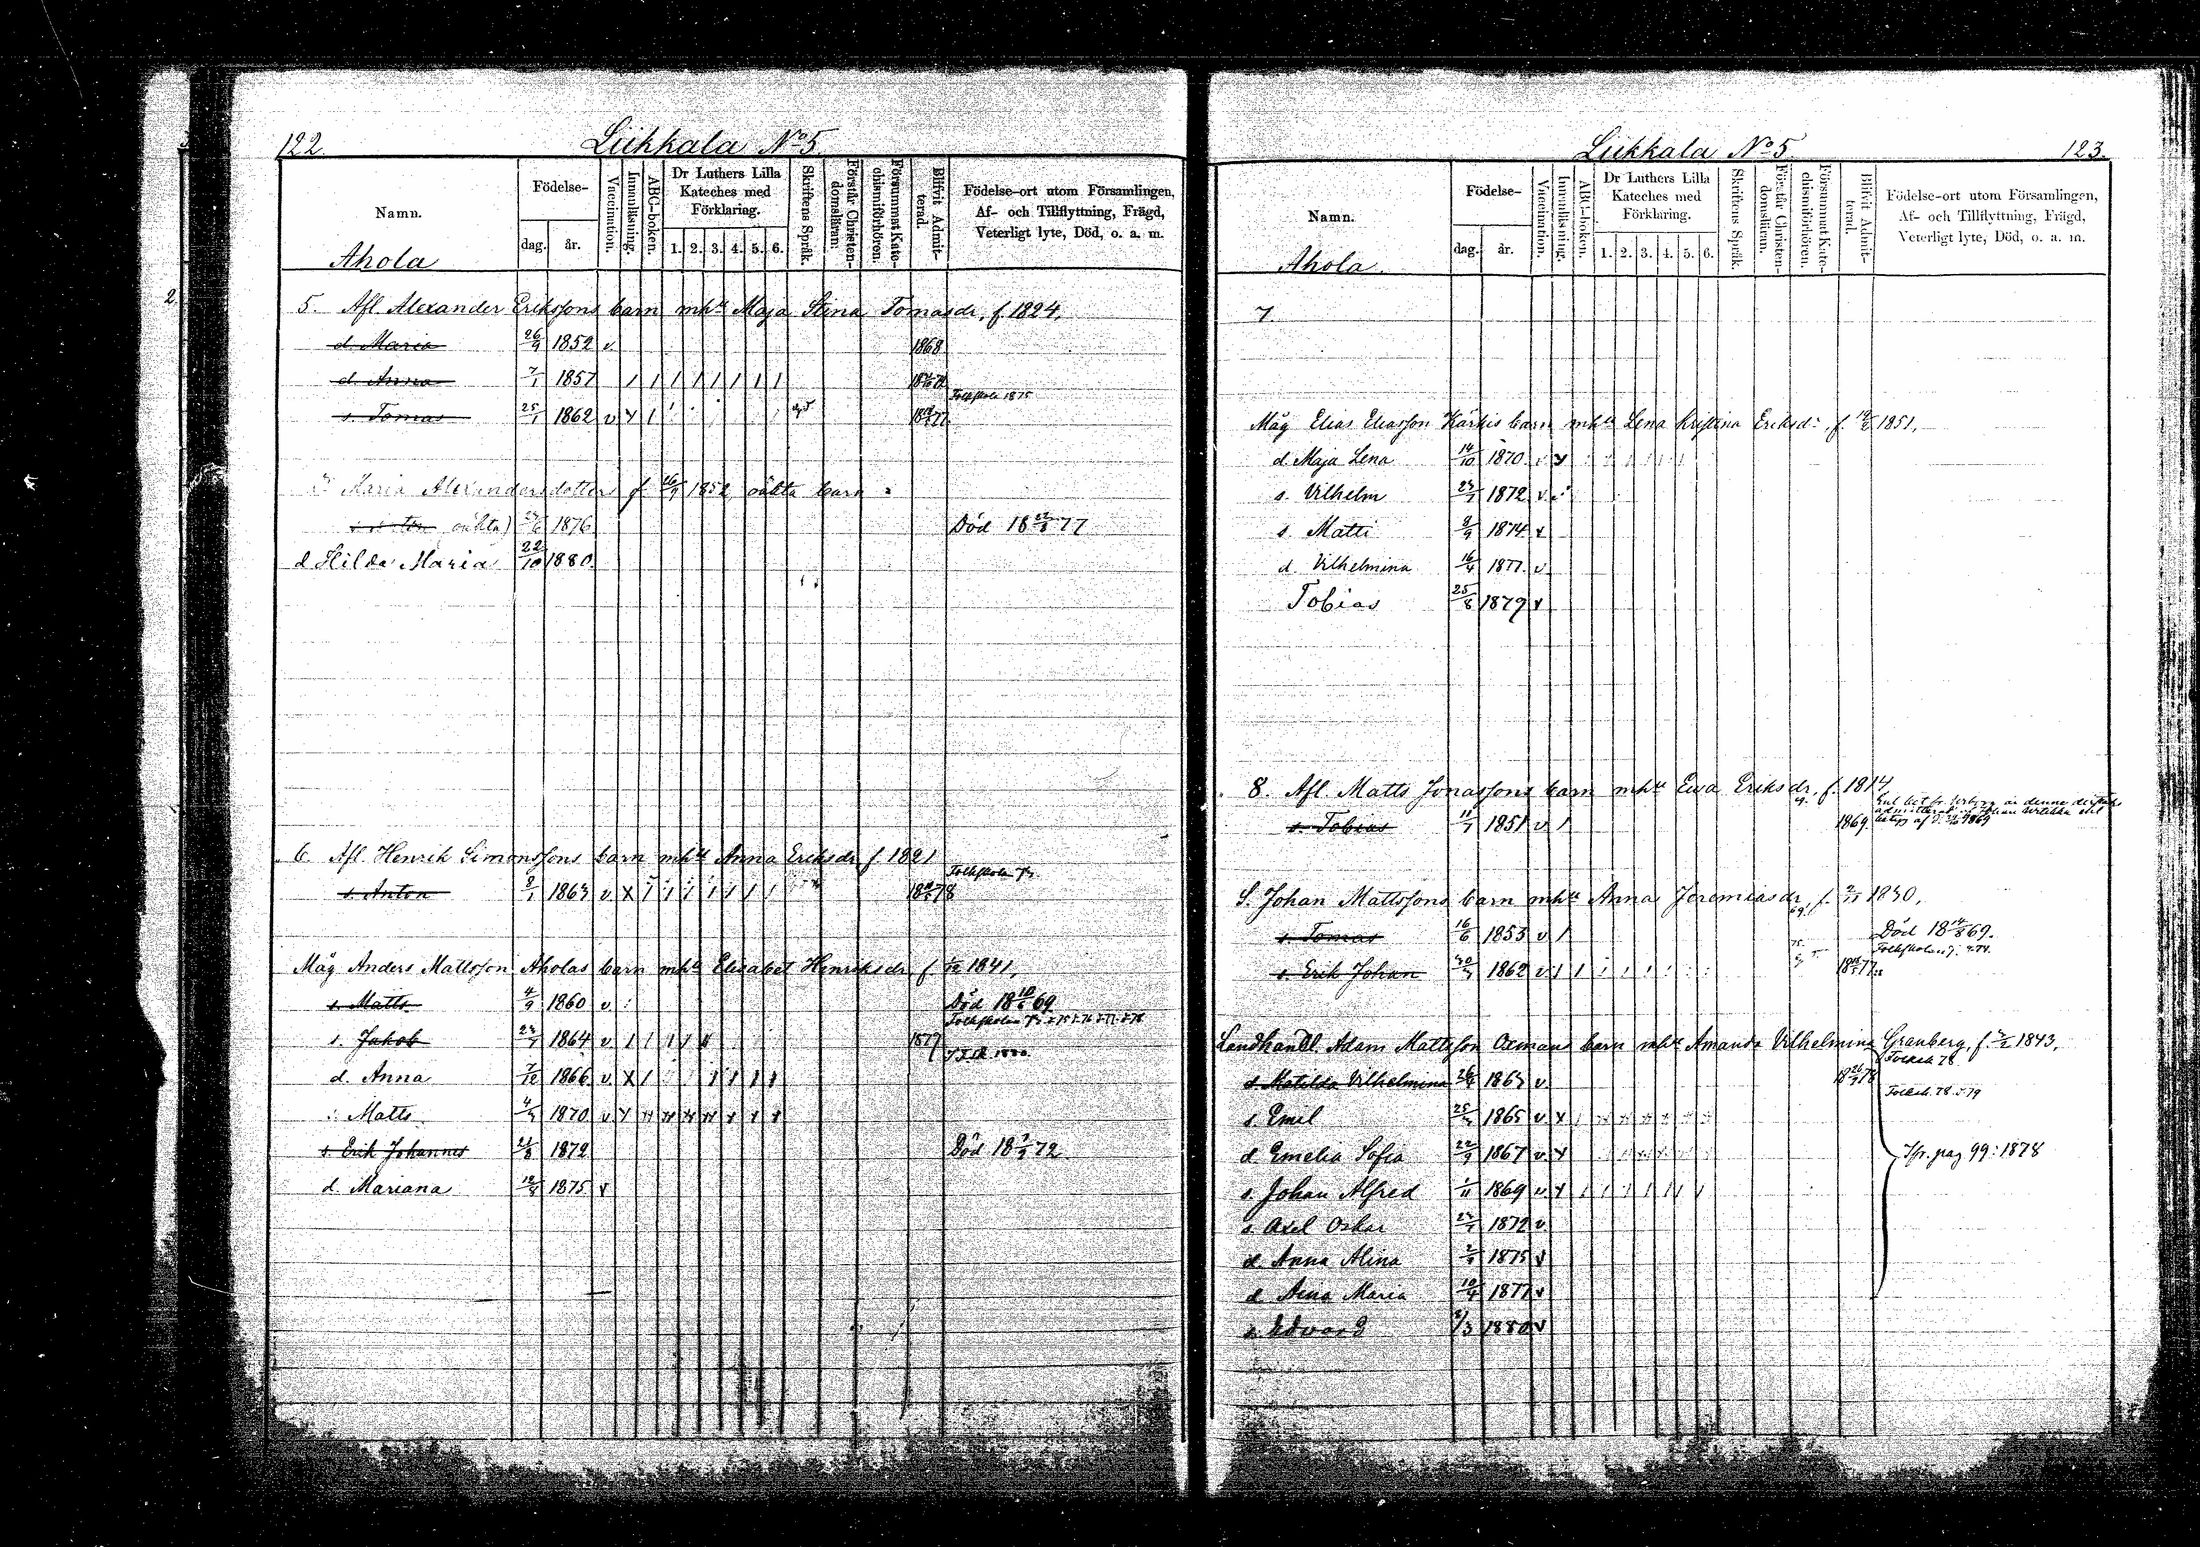 122.
Liikkala No 5
Namn.
Födelse-
dag.
år.
Vaccination.
Innanläsning.
ABC-boken.
Dr Luthers Lilla Kateches med Förklaring.
1. 2. 3. 4. 5. 6.
Skriftens Språk.
Förstår Christendomsläran:
Försummat Katechismiförhören:
Blifvit Admitterad.
Födelse-ort utom Församlingen, Af- och Tillflyttning, Frägd, Veterligt lyte, Död, o. a. m.
Ahola
5. Afl. Alexander Erikssons barn mh Maja Stina Tomasdr, f. 1824.
d. Maria 26/9 1852 v 1868
d. Anna 7/1 1857
Folkskola 1875
s. Tomas 25/1 1862 v
Maria Alexandersdotter f. 26/9 1852, oäkta barn
oäkta) 1876 Död 18 77
d Hilda Maria 22/10 1880.
6. Afl. Henrik Simonssons barn mh Anna Eriksdr f 1821
Folkskola
s. Anton 8/1 1863 v X 78
Måg Anders Mattsson Aholas barn mh Elisabet Henriksdr f 1/12 1841,
s. Matts 4/9 1860 v Död 18 10/6 69
s. Jakob 1864 v 1877
d. Anna 7/12 1866 v X
Matts 1870 v
s. Erik Johannes 21/8 1872 Död 18 72
d. Mariana 1875 v
Liikkala No 5.
123.
Namn.
Födelse-
dag.
år.
Vaccination.
Innanläsning.
ABC-boken.
Dr Luthers Lilla Kateches med Förklaring.
1. 2. 3. 4. 5. 6.
Skriftens Språk.
Förstår Christendomsläran.
Försummat Katechismiförhören.
Blifvit Admitterad.
Födelse-ort utom Församlingen, Af- och Tillflyttning, Frägd, Veterligt lyte, Död, o. a. m.
Ahola.
7.
Måg Elias Eliasson Kärkis barn mh Lena Kristina Eriksdr, f. 1851,
d. Maja Lena 14/10 1870 v
s. Vilhelm 1872 v
s. Matti 8/9 1874 v
d. Vilhelmina 16/4 1877 v
Tobias 25/8 1879 v
8. Afl. Matts Jonassons barn mh Ewa Eriksdr, f. 1814,
s. Tobias 11/7 1851 v / 1869
S. Johan Mattssons barn mh Anna Jeremiasdr, f. 1830,
s. Tomas 16/6 1853 v / Död 18 14/8 69.
s. Erik Johan 1862 v
Landhandl. Adam Mattsson Oxmans barn mh Amanda Vilhelmina Granberg, f. 1843,
Folksk 78
d Matilda Vilhelmina 1863 v
Folksk. 78 79
s. Emil 1865 v
d. Emelia Sofia 22/9 1867 v
Jfr. pag 99: 1878
s. Johan Alfred 1/11 1869 v
s. Axel Oskar 1872 v
d. Anna Alina 1875 v
d. Aina Maria 10/4 1877 v
s. Edvard 1880 v